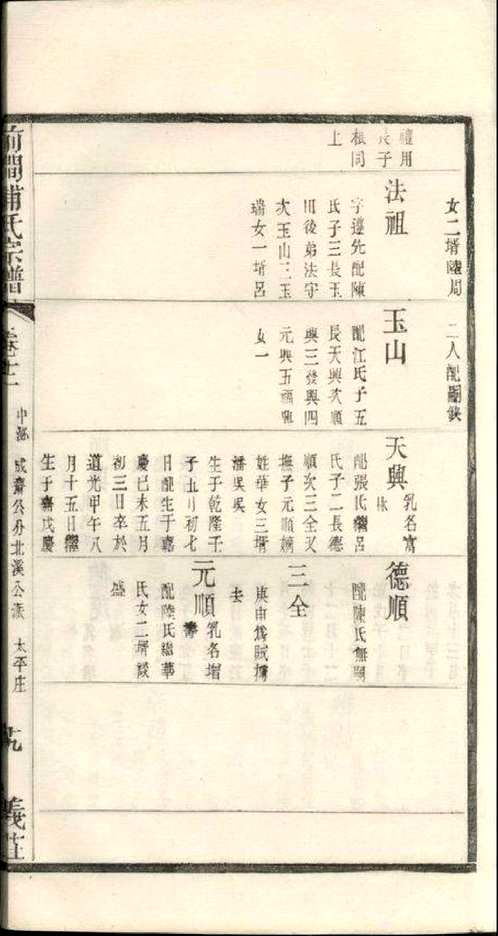 女二壻陸周
二人配闕俠
禮用
長子
根同
上
法祖
字遵先配陳
氏子三長玉
田後弟法守
次玉山三玉
瑞女一壻呂
玉山
配江氏子五
長天興次順
興三發興四
元興五福興
女一
天興
乳名富
配張氏繼呂
氏子二長德
順次三全又
撫子元順嫡
姓華女三壻
潘吳吳
生于乾隆壬
子五月初七
日配生于嘉
慶己未五月
初三日卒於
道光甲午八
月十五日繼
生于嘉慶
德順
配陳氏無嗣
三全
庚申爲賊擄
去
元順
乳名增
壽
配陸氏繼華
氏女二壻談
盛
前澗浦氏宗譜
卷十二
成齋公分北溪公派
太平庄
九
義莊